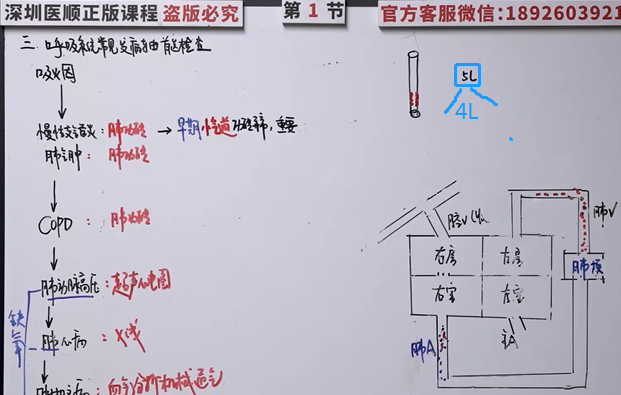 深圳医顺正版课程 盗版必究
第 1 节
官方客服微信:1892603921
三. 呼吸系统常见疾病的首选检查
吸烟
慢性支气管炎: 肺功能 → 早期小气道功能异常, 重要
肺气肿: 肺功能
COPD: 肺功能
肺动脉高压: 超声心动图
缺氧
肺心病: X线
血气分析 机械通气
5L
4L
腔V
右房
左房
右室
左室
主A
肺A
肺V
肺